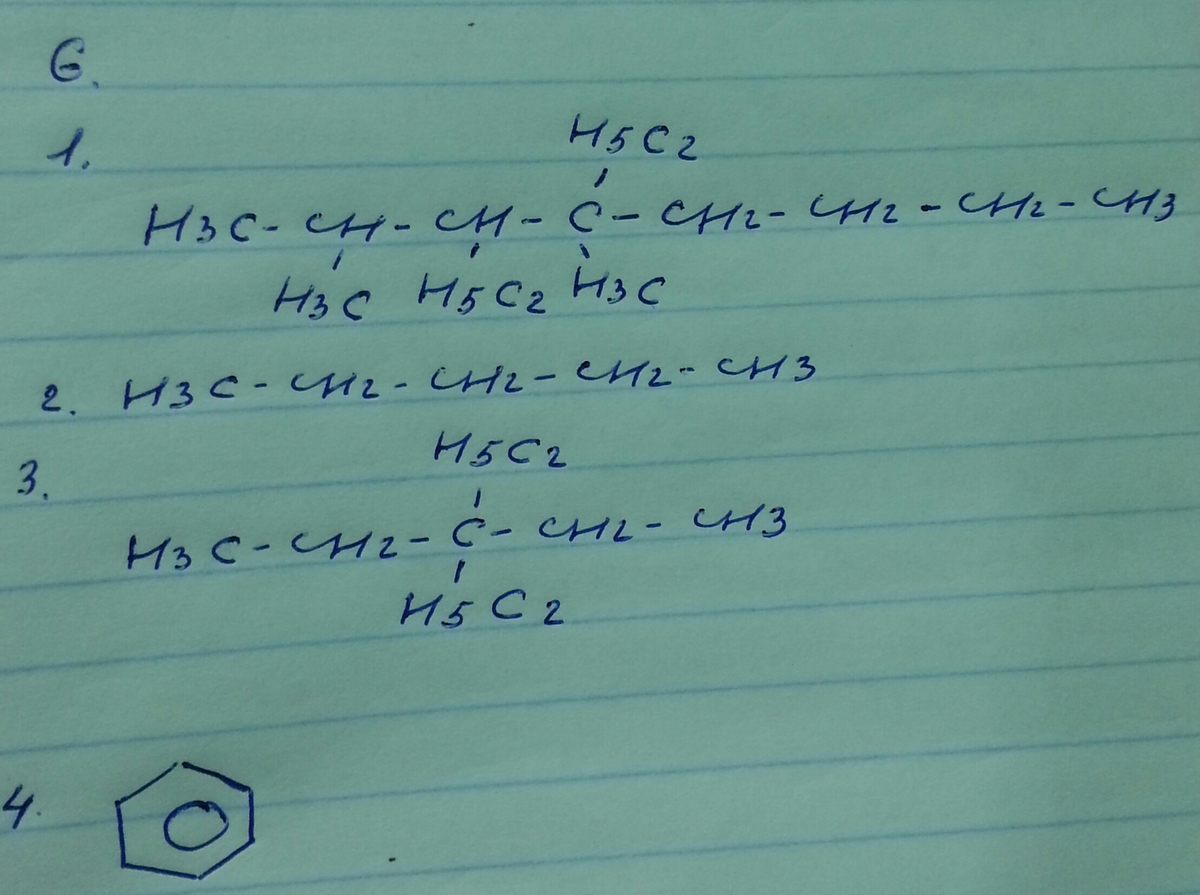 6.
1.
H5C2
H3C - CH - CH - C - CH2 - CH2 - CH2 - CH3
H3C H5C2 H3C
2. H3C - CH2 - CH2 - CH2 - CH3
3.
H5C2
H3C - CH2 - C - CH2 - CH3
H5C2
4.